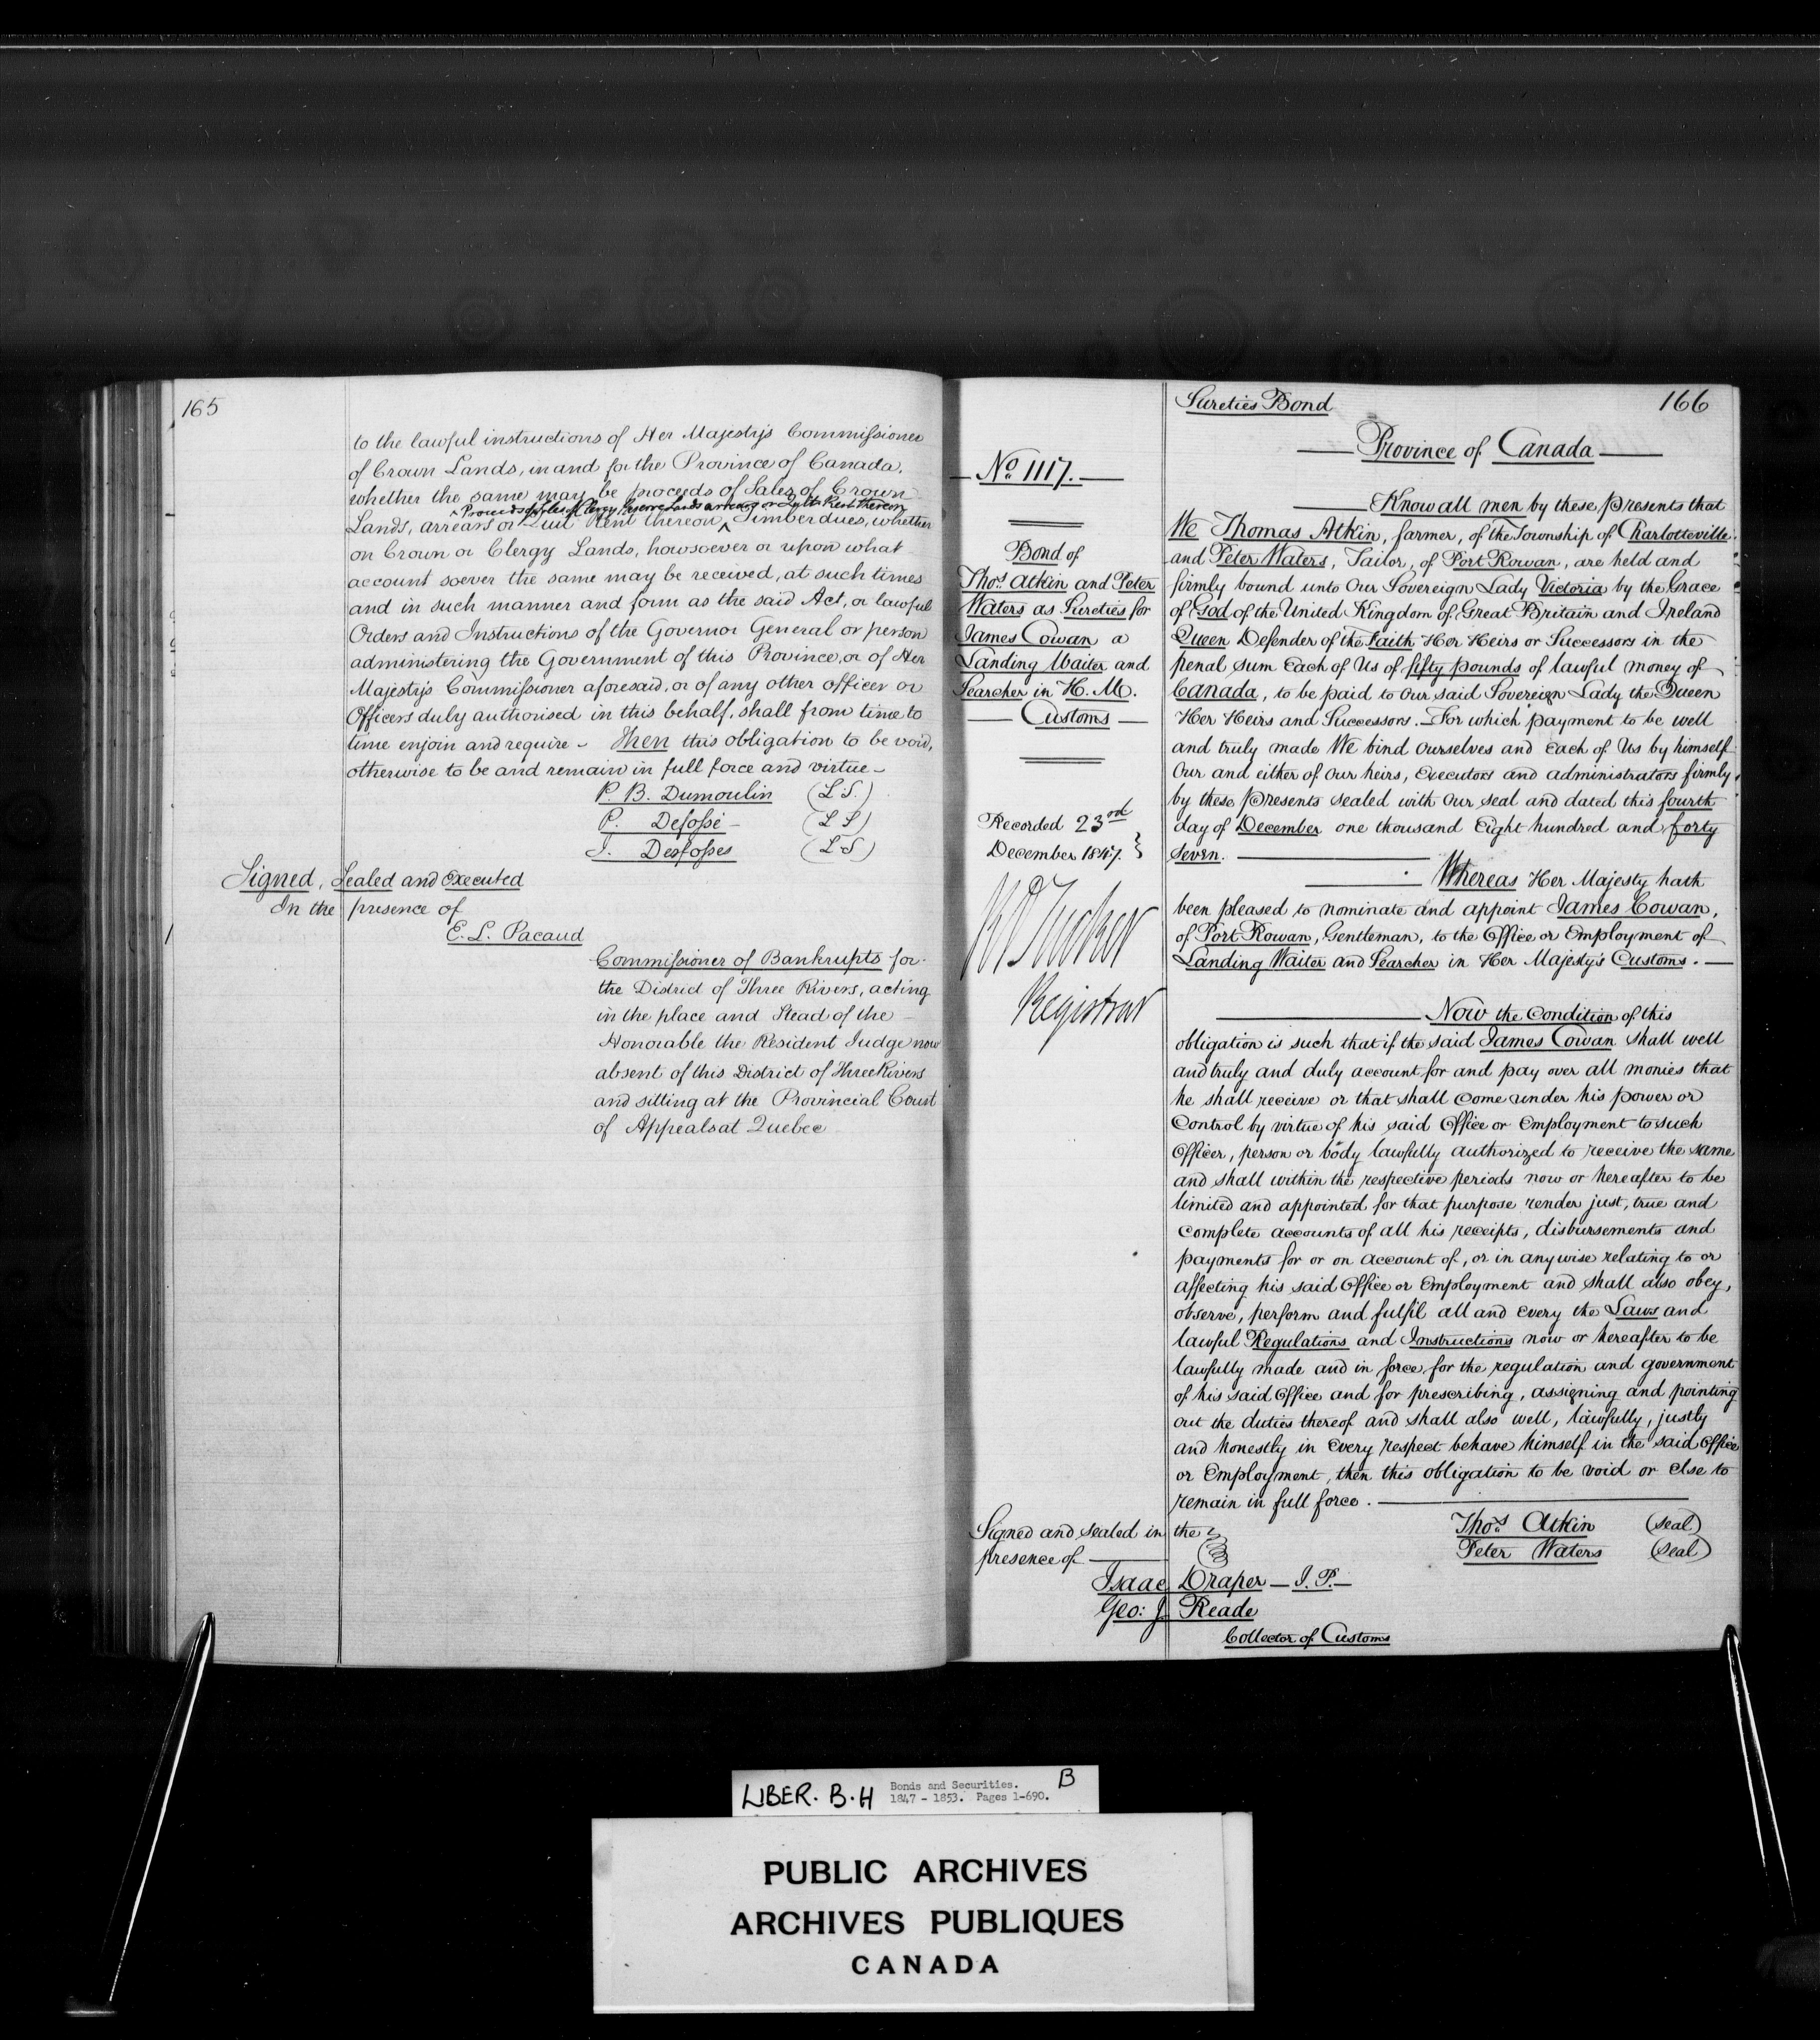 165
to the lawful instructions of Her Majesty's Commissioner
of Crown Lands, in and for the Province of Canada.
whether the same may be proceeds of Sales of Crown
Proceeds of Sales of Clergy Reserve Lands arrears or Quit Rent thereon
Lands, arrears or Quit Rent thereon, ^ Timber dues, whether
on Crown or Clergy Lands, howsoever or upon what
account soever the same may be received, at such times
and in such manner and form as the said Act, or lawful
Orders and Instructions of the Governor General or person
administering the Government of this Province, or of Her
Majesty's Commissioner aforesaid, or of any other officer or
Officers duly authorised in this behalf, shall from time to
time enjoin and require - Then this obligation to be void,
otherwise to be and remain in full force and virtue -
P. B. Dumoulin (L S.)
P. Desossé - (L S)
J. Desfosses (L S)
Signed, Sealed and Executed
In the presence of
E. L. Pacaud
Commissioner of Bankrupts for
the District of Three Rivers, acting
in the place and Stead of the
Honorable the Resident Judge now
absent of this District of Three Rivers
and sitting at the Provincial Court
of Appeals at Quebec
Sureties Bond 166
No 1117.
Bond of
Thos Atkin and Peter
Waters as Sureties for
James Cowan a
Landing Waiter and
Searcher in H. M.
Customs
Recorded 23rd
December 1847.
Tucker
Registrar
Province of Canada
Know all men by these Presents that
We Thomas Atkin, farmer, of the Township of Charlotteville
and Peter Waters, Tailor, of Port Rowan, are held and
firmly bound unto Our Sovereign Lady Victoria by the Grace
of God of the United Kingdom of Great Britain and Ireland
Queen Defender of the Faith Her Heirs or Successors in the
penal sum Each of Us of fifty pounds of lawful money of
Canada, to be paid to Our said Sovereign Lady the Queen
Her Heirs and Successors. For which payment to be well
and truly made We bind Ourselves and Each of Us by himself
Our and either of Our heirs, Executors and administrators firmly
by these Presents sealed with Our seal and dated this fourth
day of December one thousand Eight hundred and forty
Seven.
Whereas Her Majesty hath
been pleased to nominate and appoint James Cowan,
of Port Rowan, Gentleman, to the Office or Employment of
Landing Waiter and Searcher in Her Majesty's Customs.
Now the Condition of this
obligation is such that if the said James Cowan shall well
and truly and duly account for and pay over all monies that
he shall receive or that shall come under his power or
Control by virtue of his said Office or Employment to such
Officer, person or body lawfully authorized to receive the same
and shall within the respective periods now or hereafter to be
limited and appointed for that purpose render just, true and
complete accounts of all his receipts, disbursements and
payments for or on account of, or in any wise relating to or
affecting his said Office or Employment and shall also obey,
observe, perform and fulfil all and every the Laws and
lawful Regulations and Instructions now or hereafter to be
lawfully made and in force for the regulation and government
of his said Office and for prescribing, assigning and pointing
out the duties thereof and shall also well, lawfully, justly
and honestly in every respect behave himself in the said Office
or Employment, then this obligation to be void or else to
remain in full force.
Thos Atkin (seal)
Peter Waters (seal)
Signed and sealed in the
presence of
Isaac Draper - J. P. -
Geo: J. Reade
Collector of Customs
LIBER. B.H Bonds and Securities. B
1847 - 1853. Pages 1-690.
PUBLIC ARCHIVES
ARCHIVES PUBLIQUES
CANADA